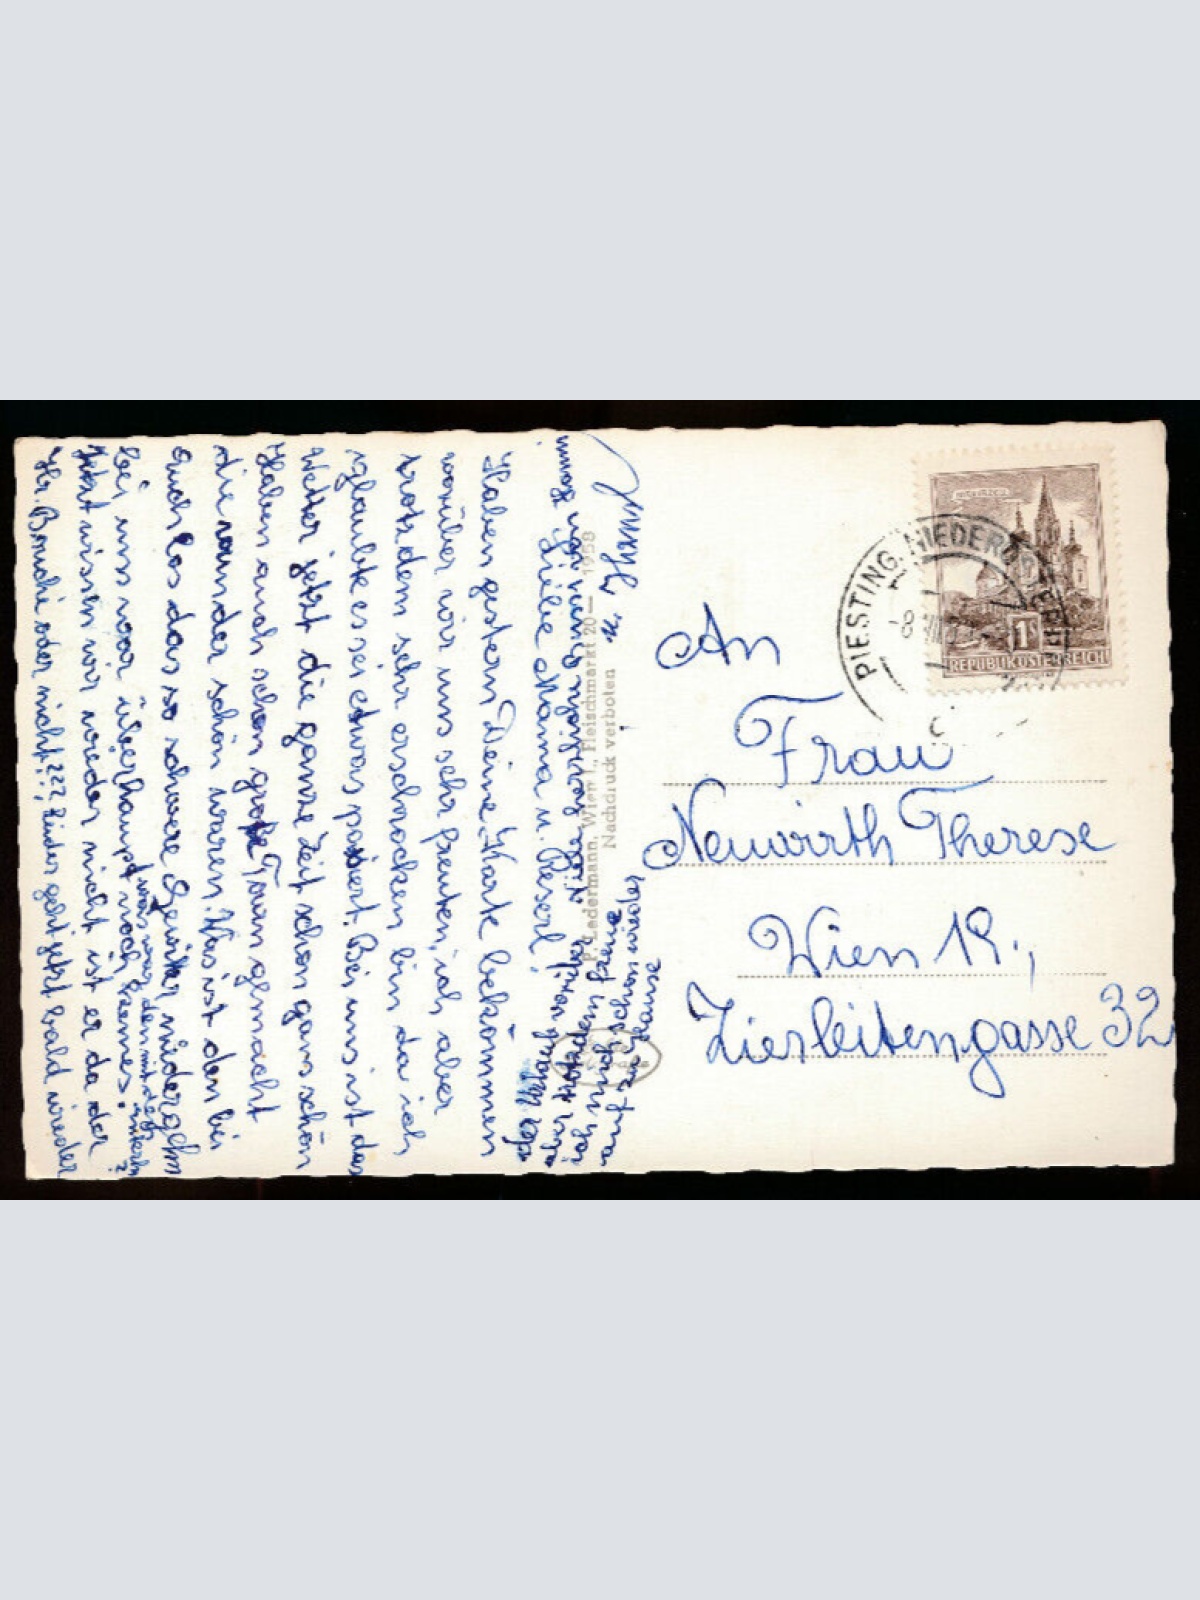 Liebe Mama u. Reserl!
Haben gestern Deine Karte bekommen
worüber wir uns sehr freuten, ich aber
trotzdem sehr erschrocken bin da ich
glaubte es sei etwas passiert. Bei uns ist das
Wetter jetzt die ganze Zeit schon ganz schön
Haben auch schon große Touren gemacht
die wunder schön waren. Was ist den bei
Euch los das so schwere Gewitter niedergehn
bei uns war überhaupt noch keines.
Jetzt wissen wir wieder nicht ist er da der
Hr. Bruchi oder nicht!! ??? Leider geht jetzt bald wieder
der Urlaub vorüber
aber trotzdem freue
ich mich schon wieder
auf zu Hause
Viele herzliche Bussi von
u. Hansl
P. Ledermann, Wien I., Fleischmarkt 20 — 1958
Nachdruck verboten
PIESTING, NIEDERÖSTERREICH
-8. VIII.
MARIAZELL
1S
REPUBLIK ÖSTERREICH
An
Frau
Neuwirth Therese
Wien 19.,
Zierleitengasse 32